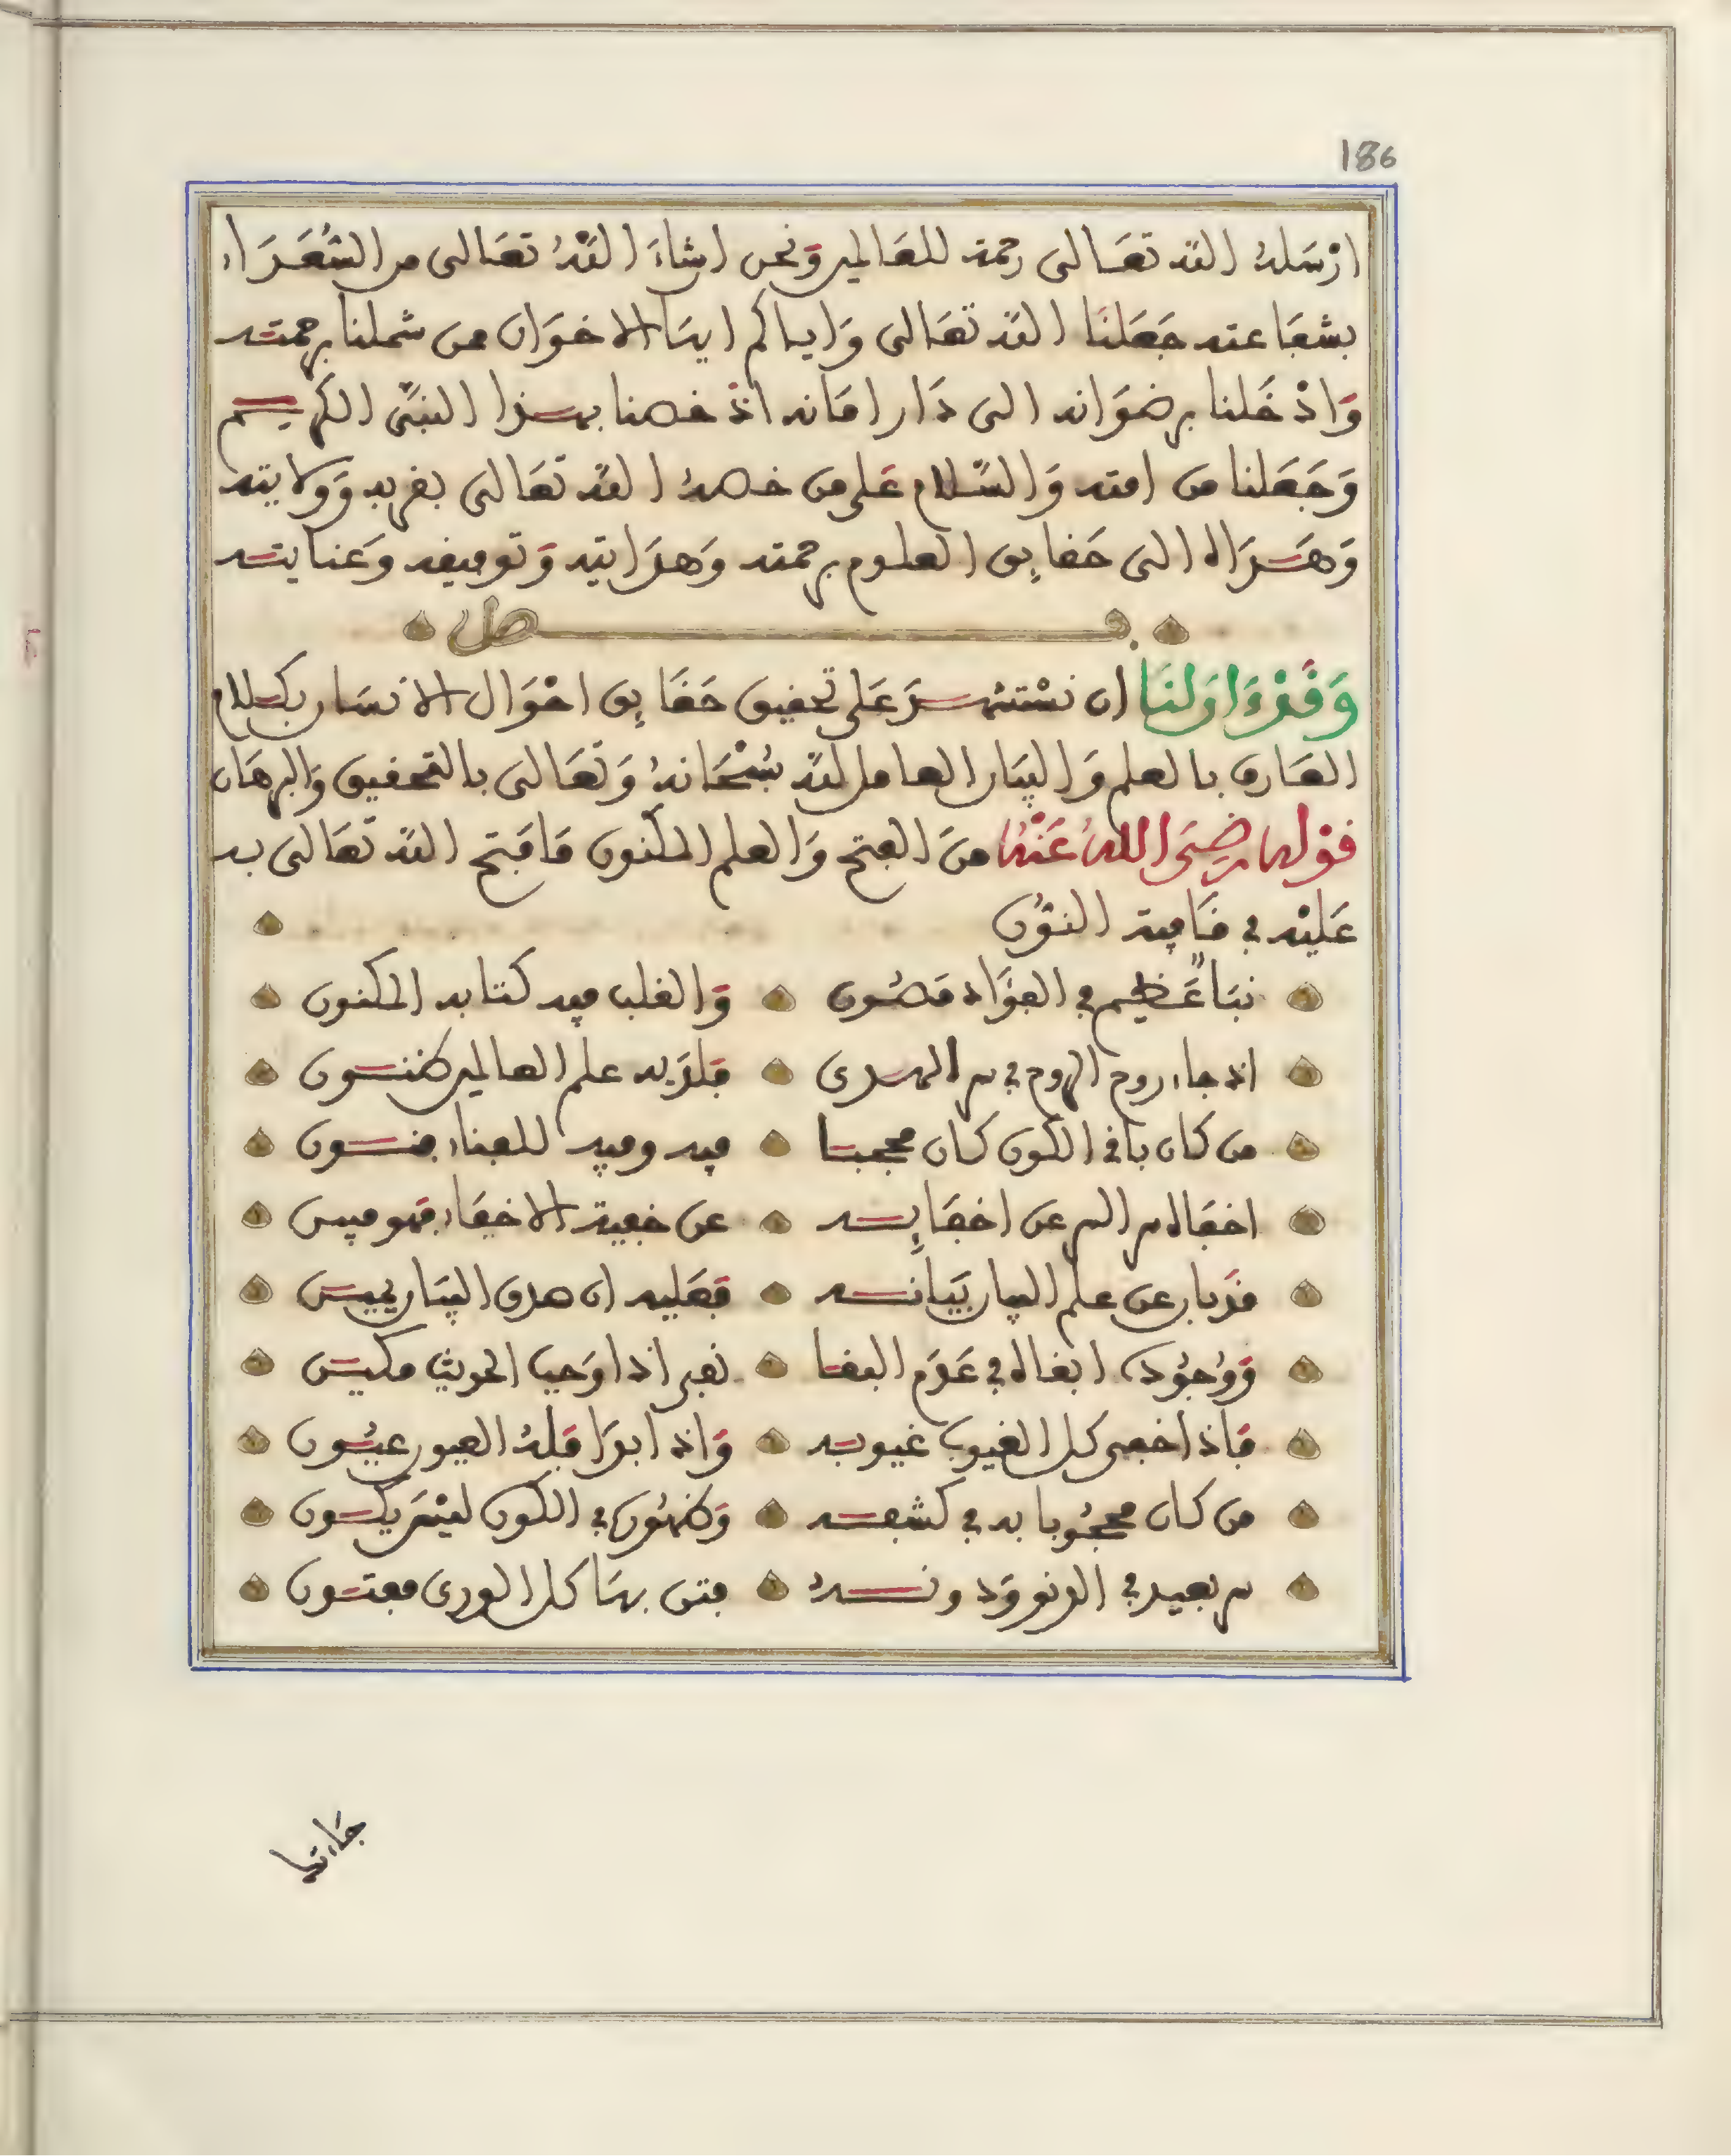 186
ارْسَلهُ الله تعَالى رحمة للعَالمين وَنحن ان شاءَ اللهُ تعَالى من السُّعَدَاء
بشفَاعته جَعَلنَا الله تعَالى وَاياكم ايهَا الاخوَان ممن شملنا برحمته
وَادْخَلنا برضوَانه الى دَار امَانه اذ خصنا بهذا النبيّ الكريم
وَجَعَلنا من امته وَالسَّلام عَلى من خصهُ الله تعَالى بقربه وَولايته
وَهَدَاه الى حَقايق العلوم برحمته وَهدَايته وَتوفيقه وَعنايته
فصل
وَقَدْ بَدَا لنَا ان نسْتشهدَ عَلى تحقيق حَقَايق احْوَال الانسَان بكلام
العَارف بالعلم وَالبيَان العامل لله سُبْحَانهُ وَتعَالى بالتحقيق وَالبرهَان
قوْله رضيَ اللهُ عَنْهُ منَ الفتح وَالعلم المكنون مَا فتح الله تعَالى به
عَليْه في قَافية النوُن
نبَا عَظيم في الفؤَاد مَصُون وَالقلب فيه كتابه المكنون
اذ جاء روح الروح في سر الهدى فلدَيه علم العالمين ظنون
من كان باقي الكون كان محجبا فيه وفيه للفناء فنون
اخفَاه سر السر عن اخفَايه عن خفية الاخفَاء فهو مبين
قدْ بان عن علم البيان بيَانه فعَليه ان صدق البيَان يبين
وَوُجُودك ابقاه في عَدَم البقا نعم اذا وَجب الحديث مكين
فَاذا اخفى كل الغيوب غيوبه وَاذا بدَا فلهُ العيون عيُون
من كان محجُوبا به في كشفه وَظهُور في الكون ليْسَ يكون
سر بعيد في الدنو وَدونهُ فتن بهَا كل الورى مفتون
جَاءتها